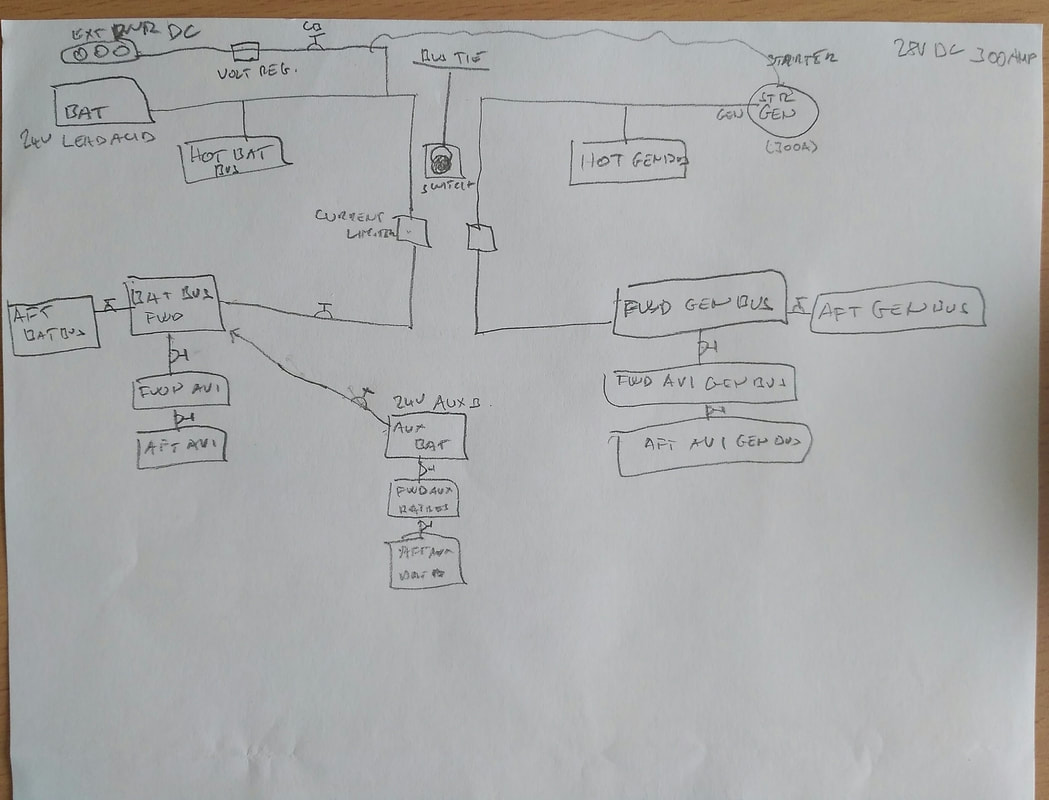 EXT PWR DC
CB
VOLT REG.
BUS TIE
STARTER
28V DC 300AMP
BAT
24V LEAD ACID
HOT BAT
BUS
SWITCH
GEN
STR
GEN
(300A)
HOT GEN BUS
CURRENT
LIMITER
AFT
BAT BUS
BAT BUS
FWD
FWD GEN BUS
AFT GEN BUS
FWD AVI
AFT AVI
24V AUX B.
AUX
BAT
FWD AUX
BAT BUS
AFT AUX
FWD AVI GEN BUS
AFT AVI GEN BUS